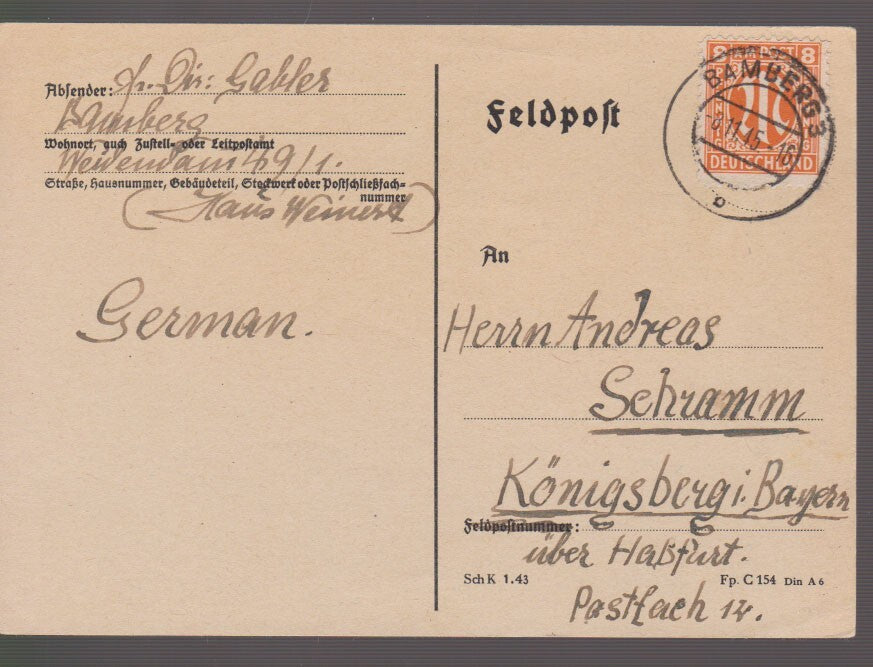 Absender: Fr. Dir: Gabler
Bamberg
Wohnort, auch Zustell- oder Leitpostamt
Weidendamm 49/I.
Straße, Hausnummer, Gebäudeteil, Stockwerk oder Postschließfach-
nummer
(Haus Weinert)
German.
Feldpost
8 8
BAMBERG 3
-8.11.45.-16
DEUTSCHLAND
An
Herrn Andreas
Schramm
Königsberg i. Bayern
Feldpostnummer:
über Haßfurt.
Sch K 1.43 Fp. C 154 Din A 6
Postfach 12.